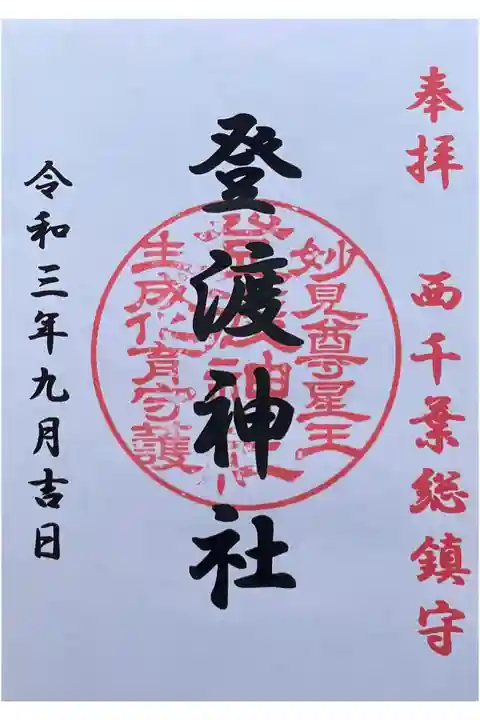 奉拝 西千葉総鎮守
登渡神社
妙見尊星王
生成化育守護
令和三年九月吉日